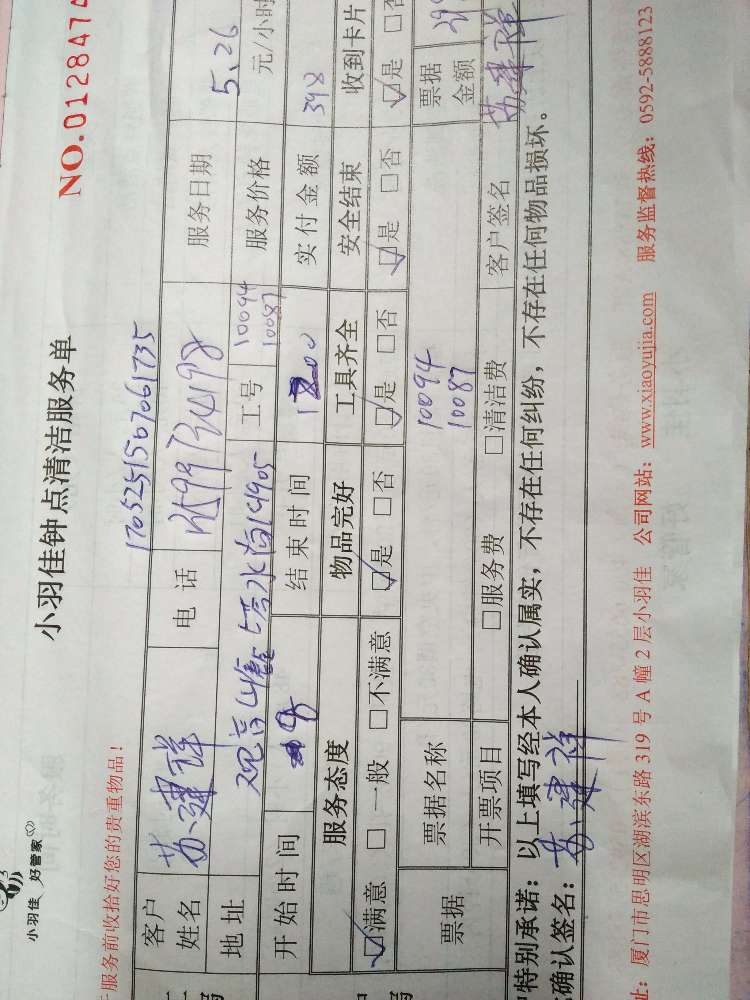 小羽佳 好管家
小羽佳钟点清洁服务单
NO.0128474
服务前收拾好您的贵重物品!
1705251567061735
客户姓名 苏建祥 电话 服务日期 5.26
地址 工号 10094 10087 服务价格 元/小时
开始时间 结束时间 实付金额 398
服务态度 物品完好 工具齐全 安全结束 收到卡片
☑满意 □一般 □不满意 ☑是 □否 ☑是 □否 ☑是 □否 ☑是 □否
票据 票据名称 10094 10087 票据金额
开票项目 □服务费 □清洁费 客户签名 苏建祥
特别承诺:以上填写经本人确认属实,不存在任何纠纷,不存在任何物品损坏。
确认签名:苏建祥
址:厦门市思明区湖滨东路 319 号 A 幢 2 层小羽佳 公司网站:www.xiaoyujia.com 服务监督热线:0592-5888123